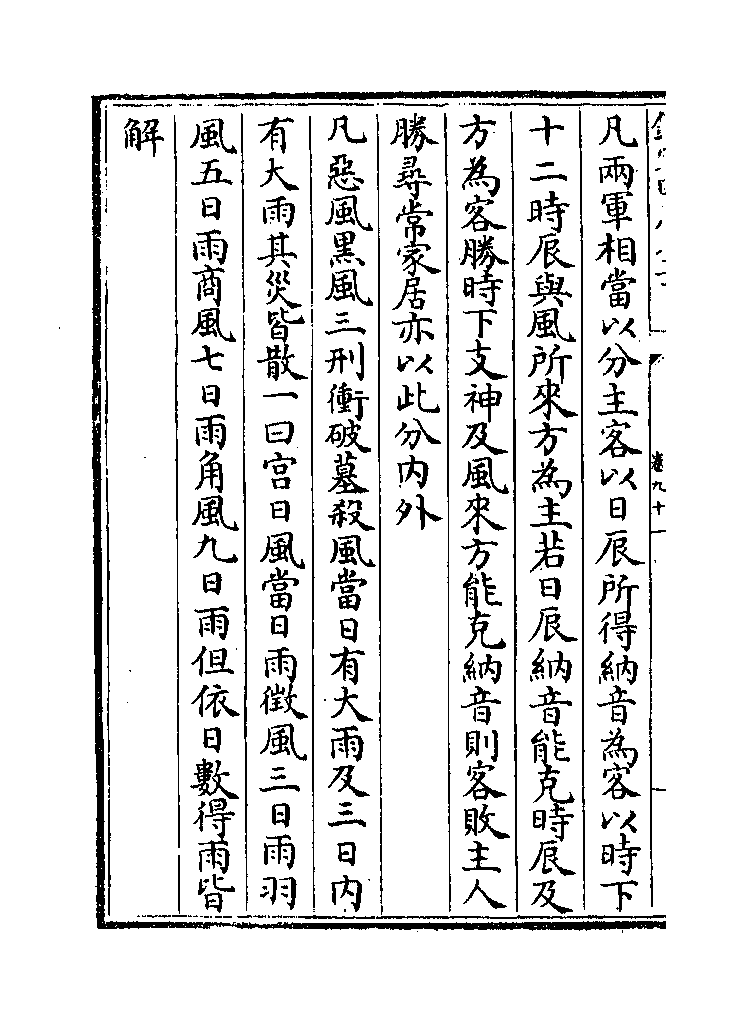 卷九十一
凡兩軍相當以分主客以日辰所得納音為客以時下
十二時辰與風所來方為主若日辰納音能克時辰及
方為客勝時下支神及風來方能克納音則客敗主人
勝尋常家居亦以此分内外
凡惡風黑風三刑衝破墓殺風當日有大雨及三日内
有大雨其災皆散一曰宫日風當日雨徵風三日雨羽
風五日雨商風七日雨角風九日雨但依日數得雨皆
解